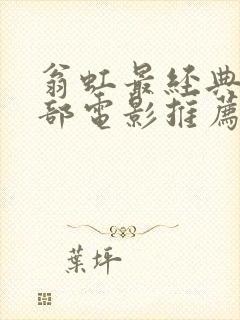 翁虹最經典
部電影推薦
葉坪